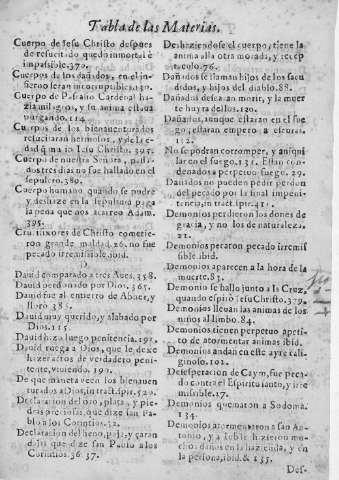 Tabla de las Materias.
Cuerpo de Iesu Christo despues
de resucitado quedo inmortal è
impassible. 370.
Cuerpos de los dañados, en el in-
fierno seran incorruptibles. 130.
Cuerpo de Pascasio Cardenal ha-
zia milagros, y su anima estaua
purgando. 114.
Cuerpos de los bienauenturados
resucitaràn hermosos, y de la e-
dad q̃ murio Iesu Christo. 395.
Cuerpo de nuestra Señora, passa-
dos tres dias no fue hallado en el
sepulcro. 389.
Cuerpo humano, quando se pudre
y deshaze en la sepultura paga
la pena que nos acarreo Adam.
395.
Crucifixores de Christo cometie-
ron grande maldad 26. no fue
pecado irremissible. ibid.
Dauid comparado a tres Aues. 358.
Dauid perdonado por Dios. 365.
Dauid fue al entierro de Abner, y
lloro 388.
Dauid muy querido, y alabado por
Dios. 115.
Dauid hizo luego penitencia. 191.
Dauid ruega a Dios, que le dexe
hazer actos de verdadero peni-
tente, viuiendo. 190.
De que manera veen los bienauen
turados a Dios, in tract. spir. 520.
Declaracion del oro, plata, y pie-
dras preciosas, que dize san Pa-
blo a los Corintios. 32.
Declaracion del heno, paja, y çaran
dajas que dize san Pablo a los
Corintios. 36. 37.
Deshaziendose el cuerpo, tiene la
anima alla otra morada, y recep-
taculo. 76.
Dañados se llaman hijos de los sacu-
didos, y hijos del diablo. 88.
Dañados dessean morir, y la muer-
te huyra dellos. 120.
Dañados, aunque estaran en el fue-
go, estaran empero a escuras.
112.
No se podran corromper, y aniqui-
lar en el fuego. 131. Estan con-
denados a perpetuo fuego. 29.
Dañados no pueden pedir perdon
del pecado por la final impeni-
tencia, in tract. spir. 421.
Demonios perdieron los dones de
gracia, y no los de naturaleza.
22.
Demonios pecaron pecado irremis
sible. ibid.
Demonios aparecen a la hora de la
muerte. 83.
Demonio se hallo junto a la Cruz,
quando espirò Iesu Christo. 379.
Demonios lleuan las animas de los
niños al limbo. 84.
Demonios tienen perpetuo apeti-
to de atormentar animas. ibid.
Demonios andan en este ayre cali-
ginoso. 102.
Desesperacion de Caym, fue peca-
do contra el Espiritu santo, y irre
missible. 17.
Demonios quemaron a Sodoma.
134.
Demonios atormentaron a san An-
tonio, y a Iob le hizieron mu-
cho daño en la hazienda, y en
la persona, ibid. & 135.
Des-